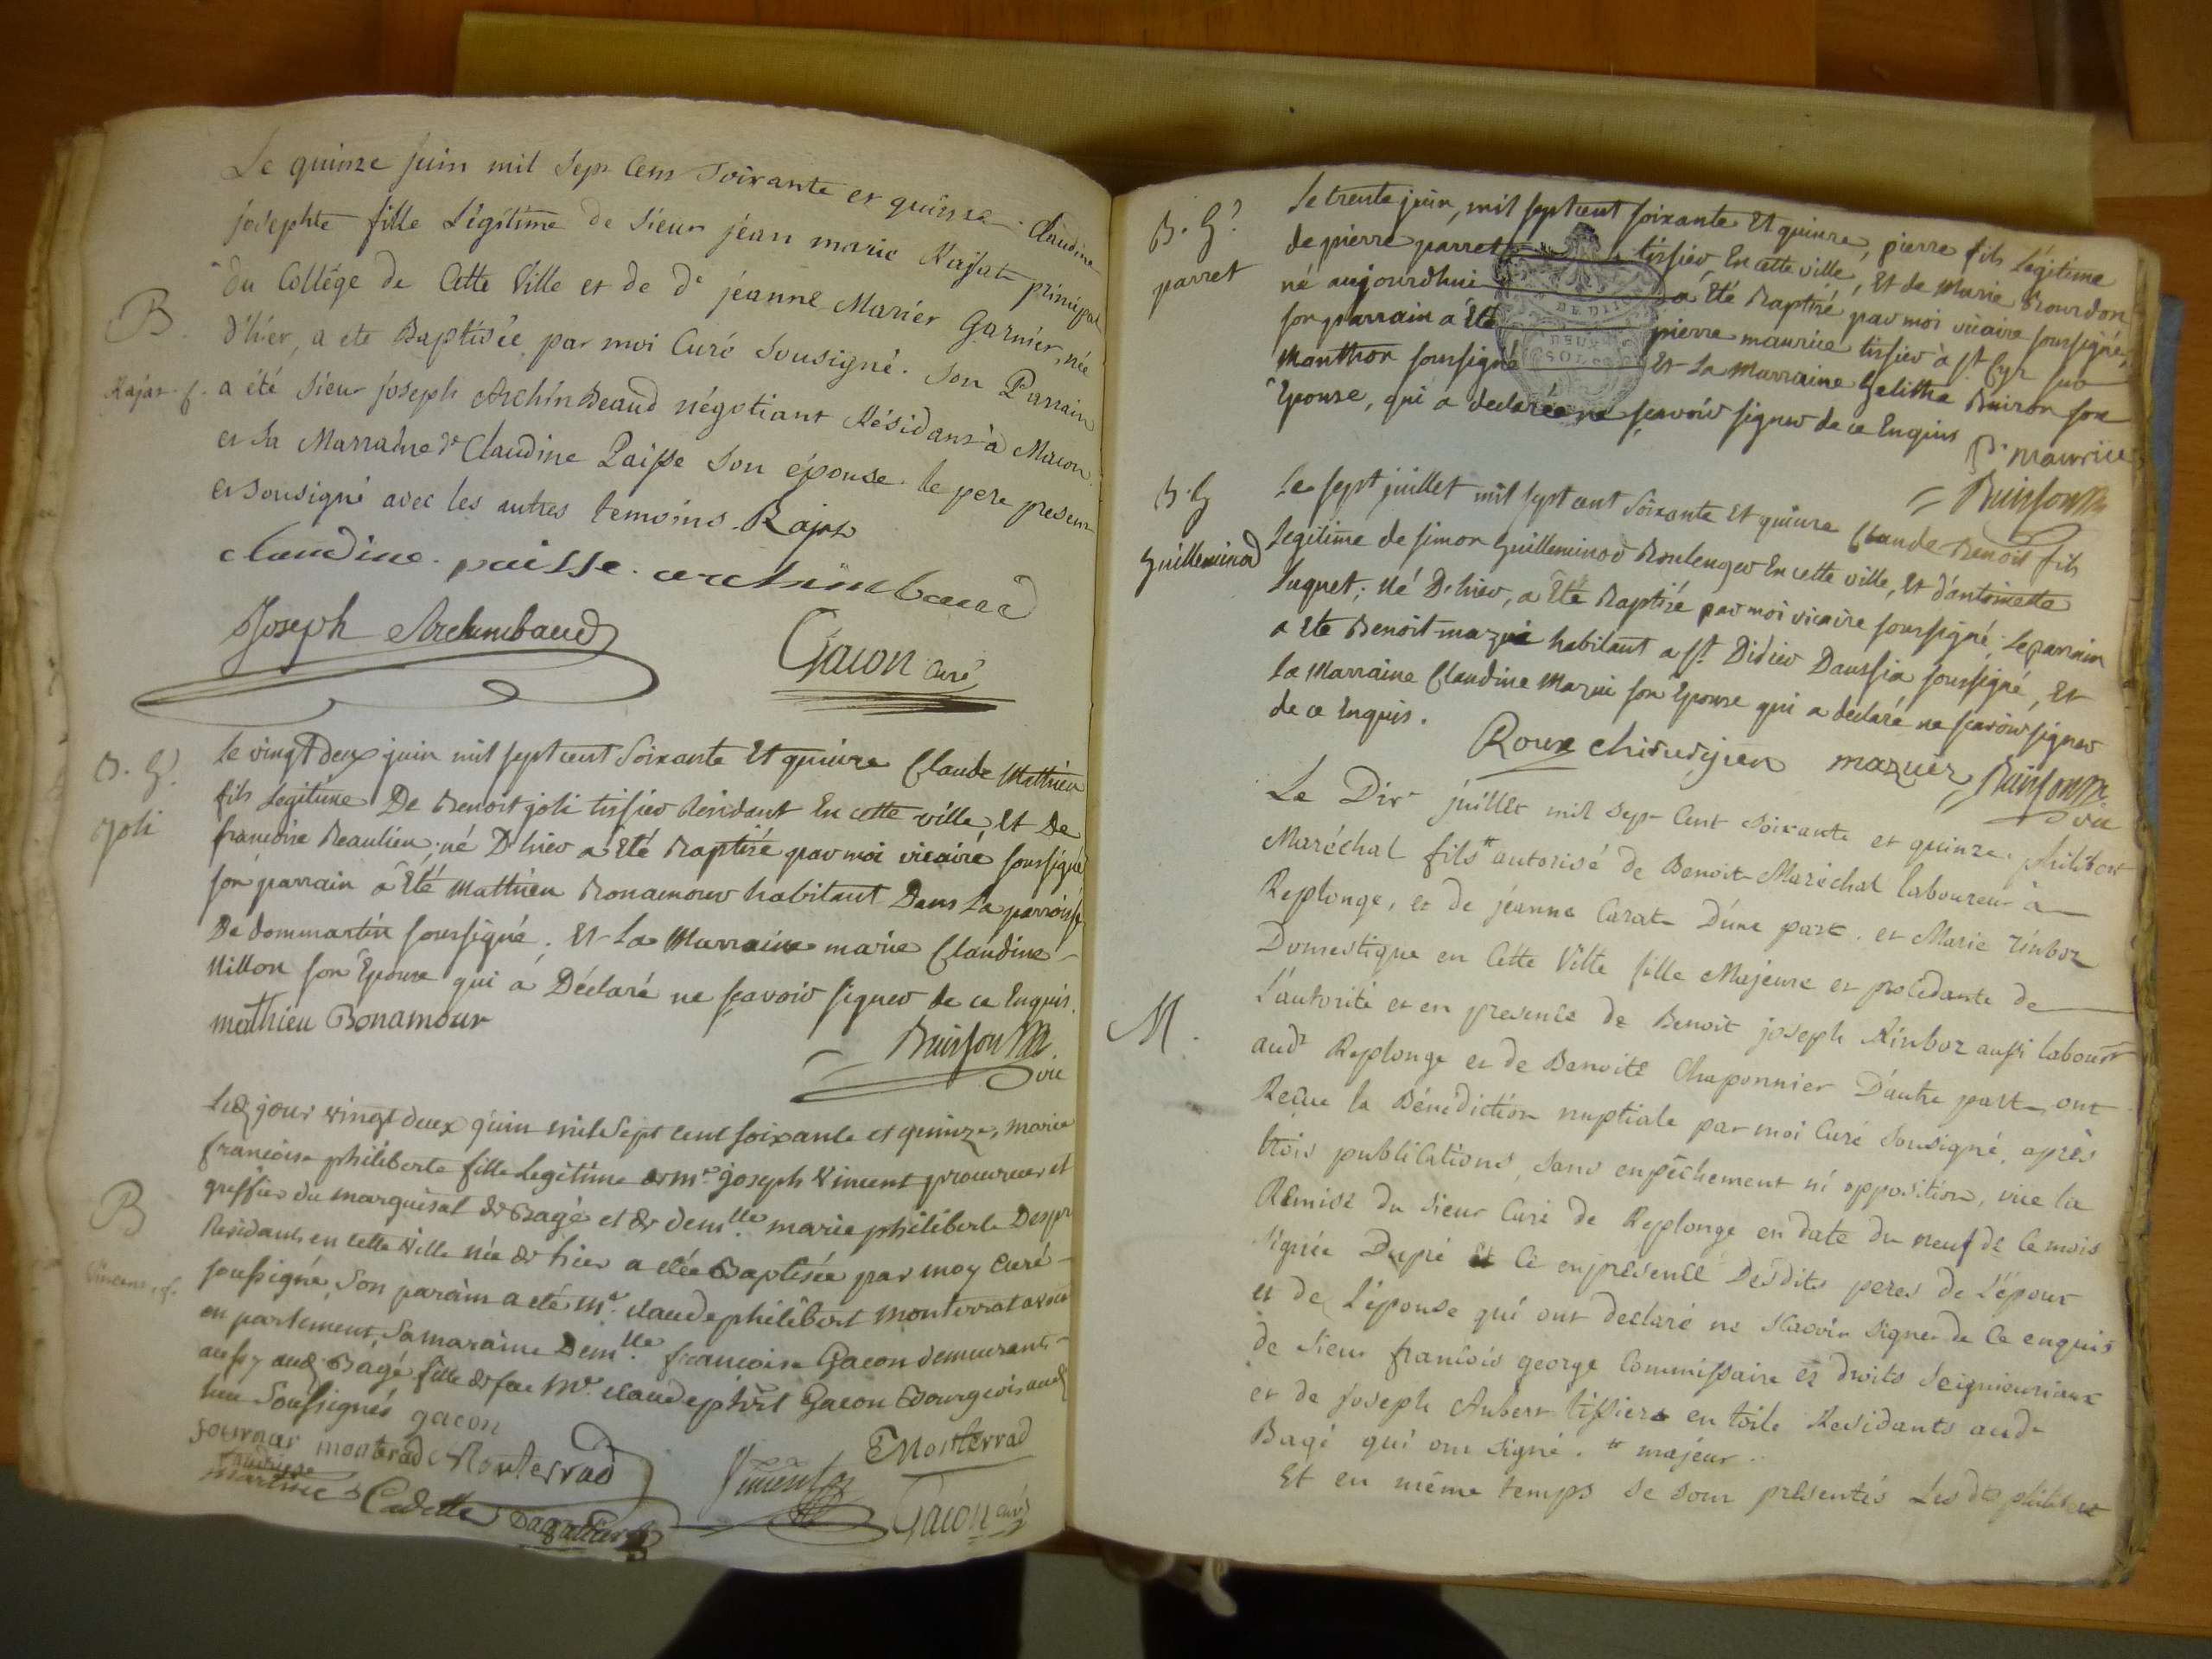 Le quinze juin mil Sept Cens Soixante et quinze. Claudine
josephte fille Légitime de Sieur jéan marie Rajat principal
du Collége de Cette Ville et de de jéanne Mariér Garnier, née
B.
d'hiér, a ete Baptisée par moi Curé Sousigné. Son Parrain
Rajat. f.
a été Sieur joseph Archimbeaud négotiant Résidant à Macon
et Sa Marraine de Claudine Paisse Son épouse. le pere present
et Sousigné avec les autres temoins. Rajat
claudine. paisse. archimbaud
Joseph Archimbaud
Gacon Curé
B. G.
Le vingt deux juin mil sept cent Soixante Et quinze Claude Mathieu
joli
fils Legitime De Benoit joli tissier Résidant En cette ville, Et De
francoise Beaulieu; né D'hier a Eté Baptizé par moi vicaire soussigné
son parrain a Eté Mathieu Bonamour habitant Dans la parroisse
De dommartin soussigné. Et La Marraine marie Claudine
Millon son Epouse qui a Déclaré ne sçavoir signer de ce Enquis.
mathieu Bonamour
Buisson
vic
Ledt jour vingt deux juin mile Sept cent soixante et quinze, marie
francoise philiberte fille Legitime de me joseph Vincent procureur et
greffier du marquisat de Bagé et de demlle marie philiberte Despr
B
Residants en cette Ville née de hier a etée Baptisée par moy Curé
Vincent, f.
soussigné, Son parain a eté Me. claude philibert Monterrat avocat
en parlement, Sa maraine Demlle francoise Gacon demeurant
aussy aud. Bâgé fille de feu Me. claude phirt Gacon Bourgeois aud
lieu Soussignés gacon
monterad Monterrad
Vincent
E Monterrad
Cadette Dagallier
Gacon curé
B. G.
Le trente juin, mil sept cent soixante Et quinze, pierre fils Légitime
parret
de pierre parret tissier, En cette ville, Et de Marie Bourdon
né aujourdhui a Eté Baptizé par moi vicaire soussigné,
son parrain a Eté pierre maurice tissier à st Cyr sur
Manthon soussigné Et La Marraine Gelithe Buiron son
Epouse, qui a declaree ne sçavoir signer de ce Enquis
P. Maurice
Buisson
B. G
Le sept juillet mil sept cent Soixante Et quinze Claude Benoit fils
Guilleminod
Legitime de simon Guilleminod Boulenger En cette ville, Et d'antoinette
Luquet; Né D'hier, a Eté Baptizé par moi vicaire soussigné; Le parrain
a Eté Benoit mazuié habitant a st Didier Daussia soussigné, Et
La Marraine Claudine Mazuie son Epouse qui a declaré ne scavoir signer
de ce Enquis.
Roux chirurgien mazuer Buisson
vic
Le Dix juillet mil Sept Cent Soixante et quinze. philibert
Maréchal fils # autorisé de Benoit Maréchal laboureur à
Replonge, et de jéanne Carat D'une part. et Marie Rinboz
Domestique en Cétte Ville fille Majeure et procédante de
M.
L'autorité et en presence de Benoit joseph Rinboz aussi labour
audt Replonge et de Benoite Chaponnier D'autre part, ont
Reçue la Bénédiction nuptiale par moi Curé Sousigné, après
trois publications, Sans enpêchement ni opposition, vüe la
Remise du Sieur Curé de Replonge en date du neuf de Ce mois
Signée Dupré Ce en presence Desdits peres de L'époux
et de L'épouse qui ont declaré ne Scavoir Signer de Ce enquis
de Sieur francois george Commissaire ès droits Seigniouriaux
et de joseph Aubert tissier en toile Residants aud
Bagé qui ont Signé. # majeur.
Et en même temps Se Sont présentés Les dts philibert